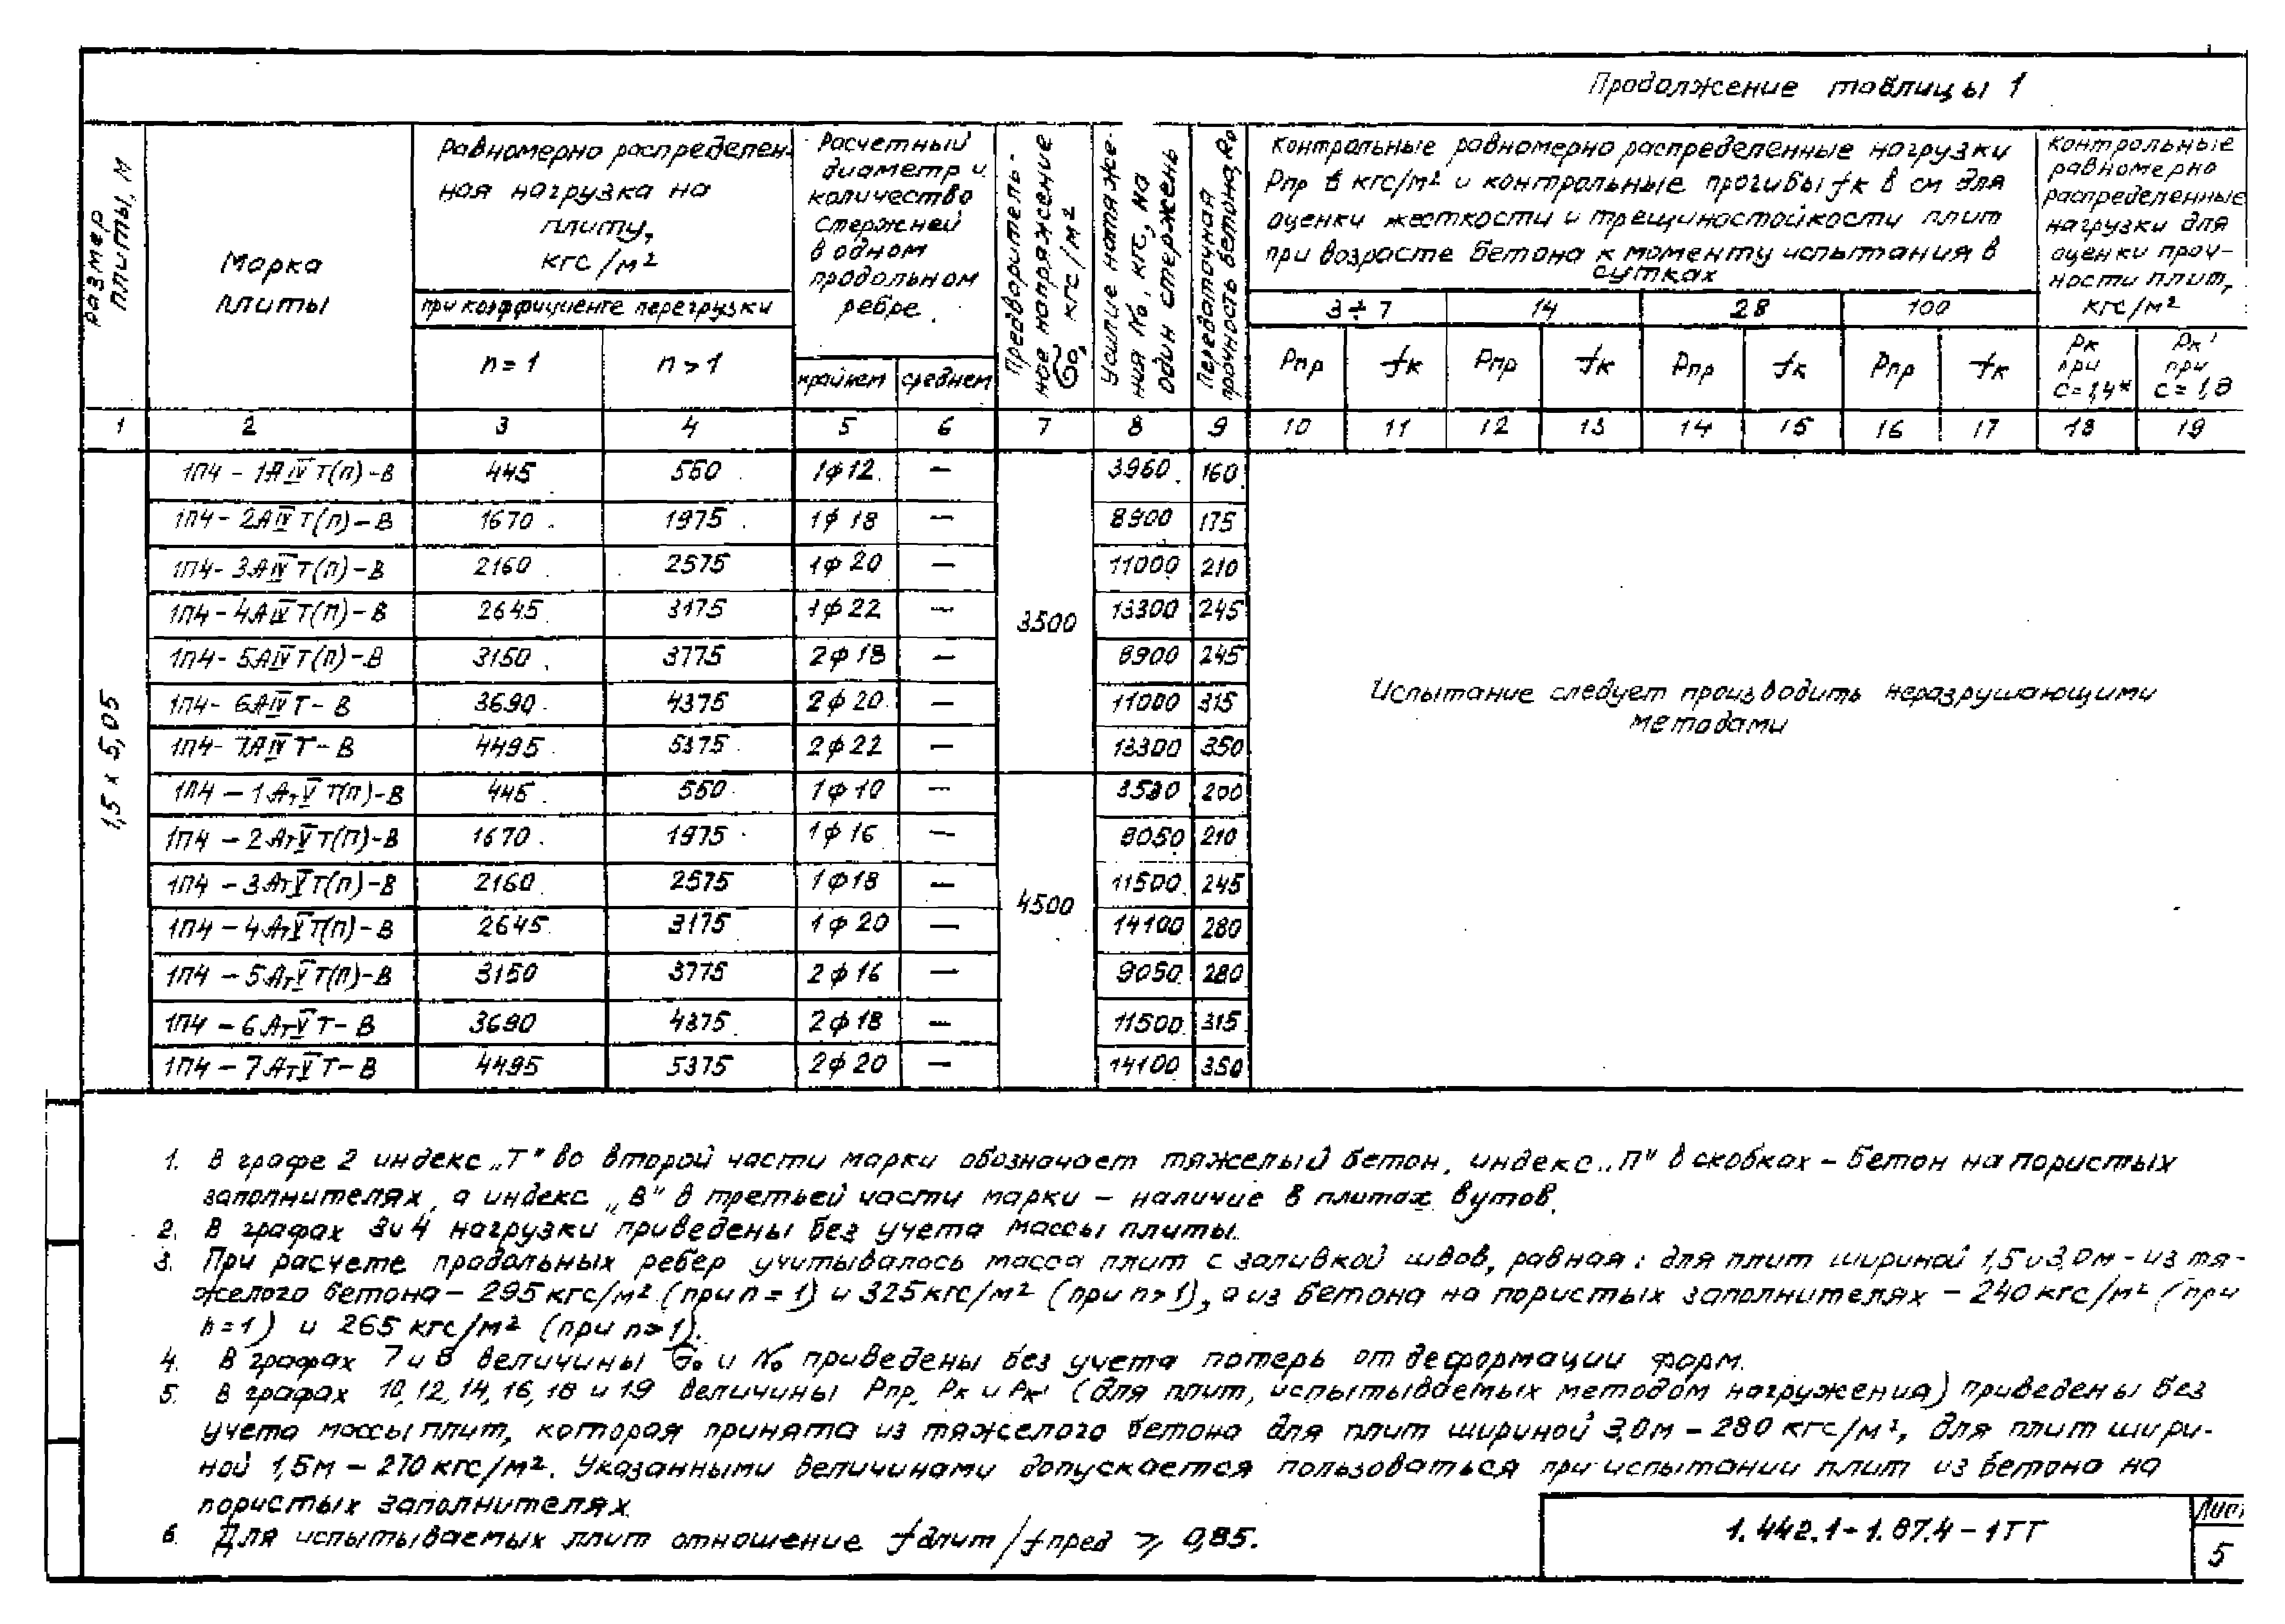 Продолжение таблицы 1
Размер плиты, м
Марка плиты
Равномерно распределен-
ная нагрузка на
плиту,
кгс/м²
при коэффициенте перегрузки
n = 1
n > 1
Расчетный
диаметр и
количество
стержней
в одном
продольном
ребре
крайнем
среднем
Предваритель-
ное напряжение
σ₀, кгс/м²
Усилие натяже-
ния N₀, кгс, на
один стержень
Передаточная
прочность бетона, R₀
Контрольные равномерно распределенные нагрузки
Рпр в кгс/м² и контрольные прогибы fк в см для
оценки жесткости и трещиностойкости плит
при возрасте бетона к моменту испытания в
сутках
3÷7 14 28 100
Рпр fк Рпр fк Рпр fк Рпр fк
контрольные
равномерно
распределенные
нагрузки для
оценки проч-
ности плит,
кгс/м²
Рк при С=1,4*
Рк' при С=1,8
1 2 3 4 5 6 7 8 9 10 11 12 13 14 15 16 17 18 19
1,5 × 5,05
1П4 – 1АIVТ(п)–В 445 550 1ф12 — 3960 160
1П4 – 2АIVТ(п)–В 1670 1975 1ф18 — 8900 175
1П4 – 3АIVТ(п)–В 2160 2575 1ф20 — 11000 210
1П4 – 4АIVТ(п)–В 2645 3175 1ф22 — 13300 245
3500
1П4 – 5АIVТ(п)–В 3150 3775 2ф18 — 8900 245
1П4 – 6АIVТ–В 3690 4375 2ф20 — 11000 315
1П4 – 7АIVТ–В 4495 5375 2ф22 — 13300 350
1П4 – 1АтVТ(п)–В 445 550 1ф10 — 3530 200
1П4 – 2АтVТ(п)–В 1670 1975 1ф16 — 9050 210
1П4 – 3АтVТ(п)–В 2160 2575 1ф18 — 11500 245
4500
1П4 – 4АтVТ(п)–В 2645 3175 1ф20 — 14100 280
1П4 – 5АтVТ(п)–В 3150 3775 2ф16 — 9050 280
1П4 – 6АтVТ–В 3690 4375 2ф18 — 11500 315
1П4 – 7АтVТ–В 4495 5375 2ф20 — 14100 350
Испытание следует производить неразрушающими
методами
1. В графе 2 индекс „Т" во второй части марки обозначает тяжелый бетон, индекс „П" в скобках – бетон на пористых
заполнителях, а индекс „В" в третьей части марки – наличие в плитах вутов.
2. В графах 3 и 4 нагрузки приведены без учета массы плиты.
3. При расчете продольных ребер учитывалось масса плит с заливкой швов, равная: для плит шириной 1,5 и 3,0 м – из тя-
желого бетона – 295 кгс/м² (при n = 1) и 325 кгс/м² (при n > 1), а из бетона на пористых заполнителях – 240 кгс/м² (при
n = 1) и 265 кгс/м² (при n > 1).
4. В графах 7 и 8 величины σ₀ и N₀ приведены без учета потерь от деформации форм.
5. В графах 10, 12, 14, 16, 18 и 19 величины Рпр, Рк и Рк' (для плит, испытываемых методом нагружения) приведены без
учета массы плит, которая принята из тяжелого бетона для плит шириной 3,0 м – 280 кгс/м², для плит шири-
ной 1,5 м – 270 кгс/м². Указанными величинами допускается пользоваться при испытании плит из бетона на
пористых заполнителях.
6. Для испытываемых плит отношение fдлит/fпред ⩾ 0,85.
1.442.1-1.87.4-1ТТ
Лист
5